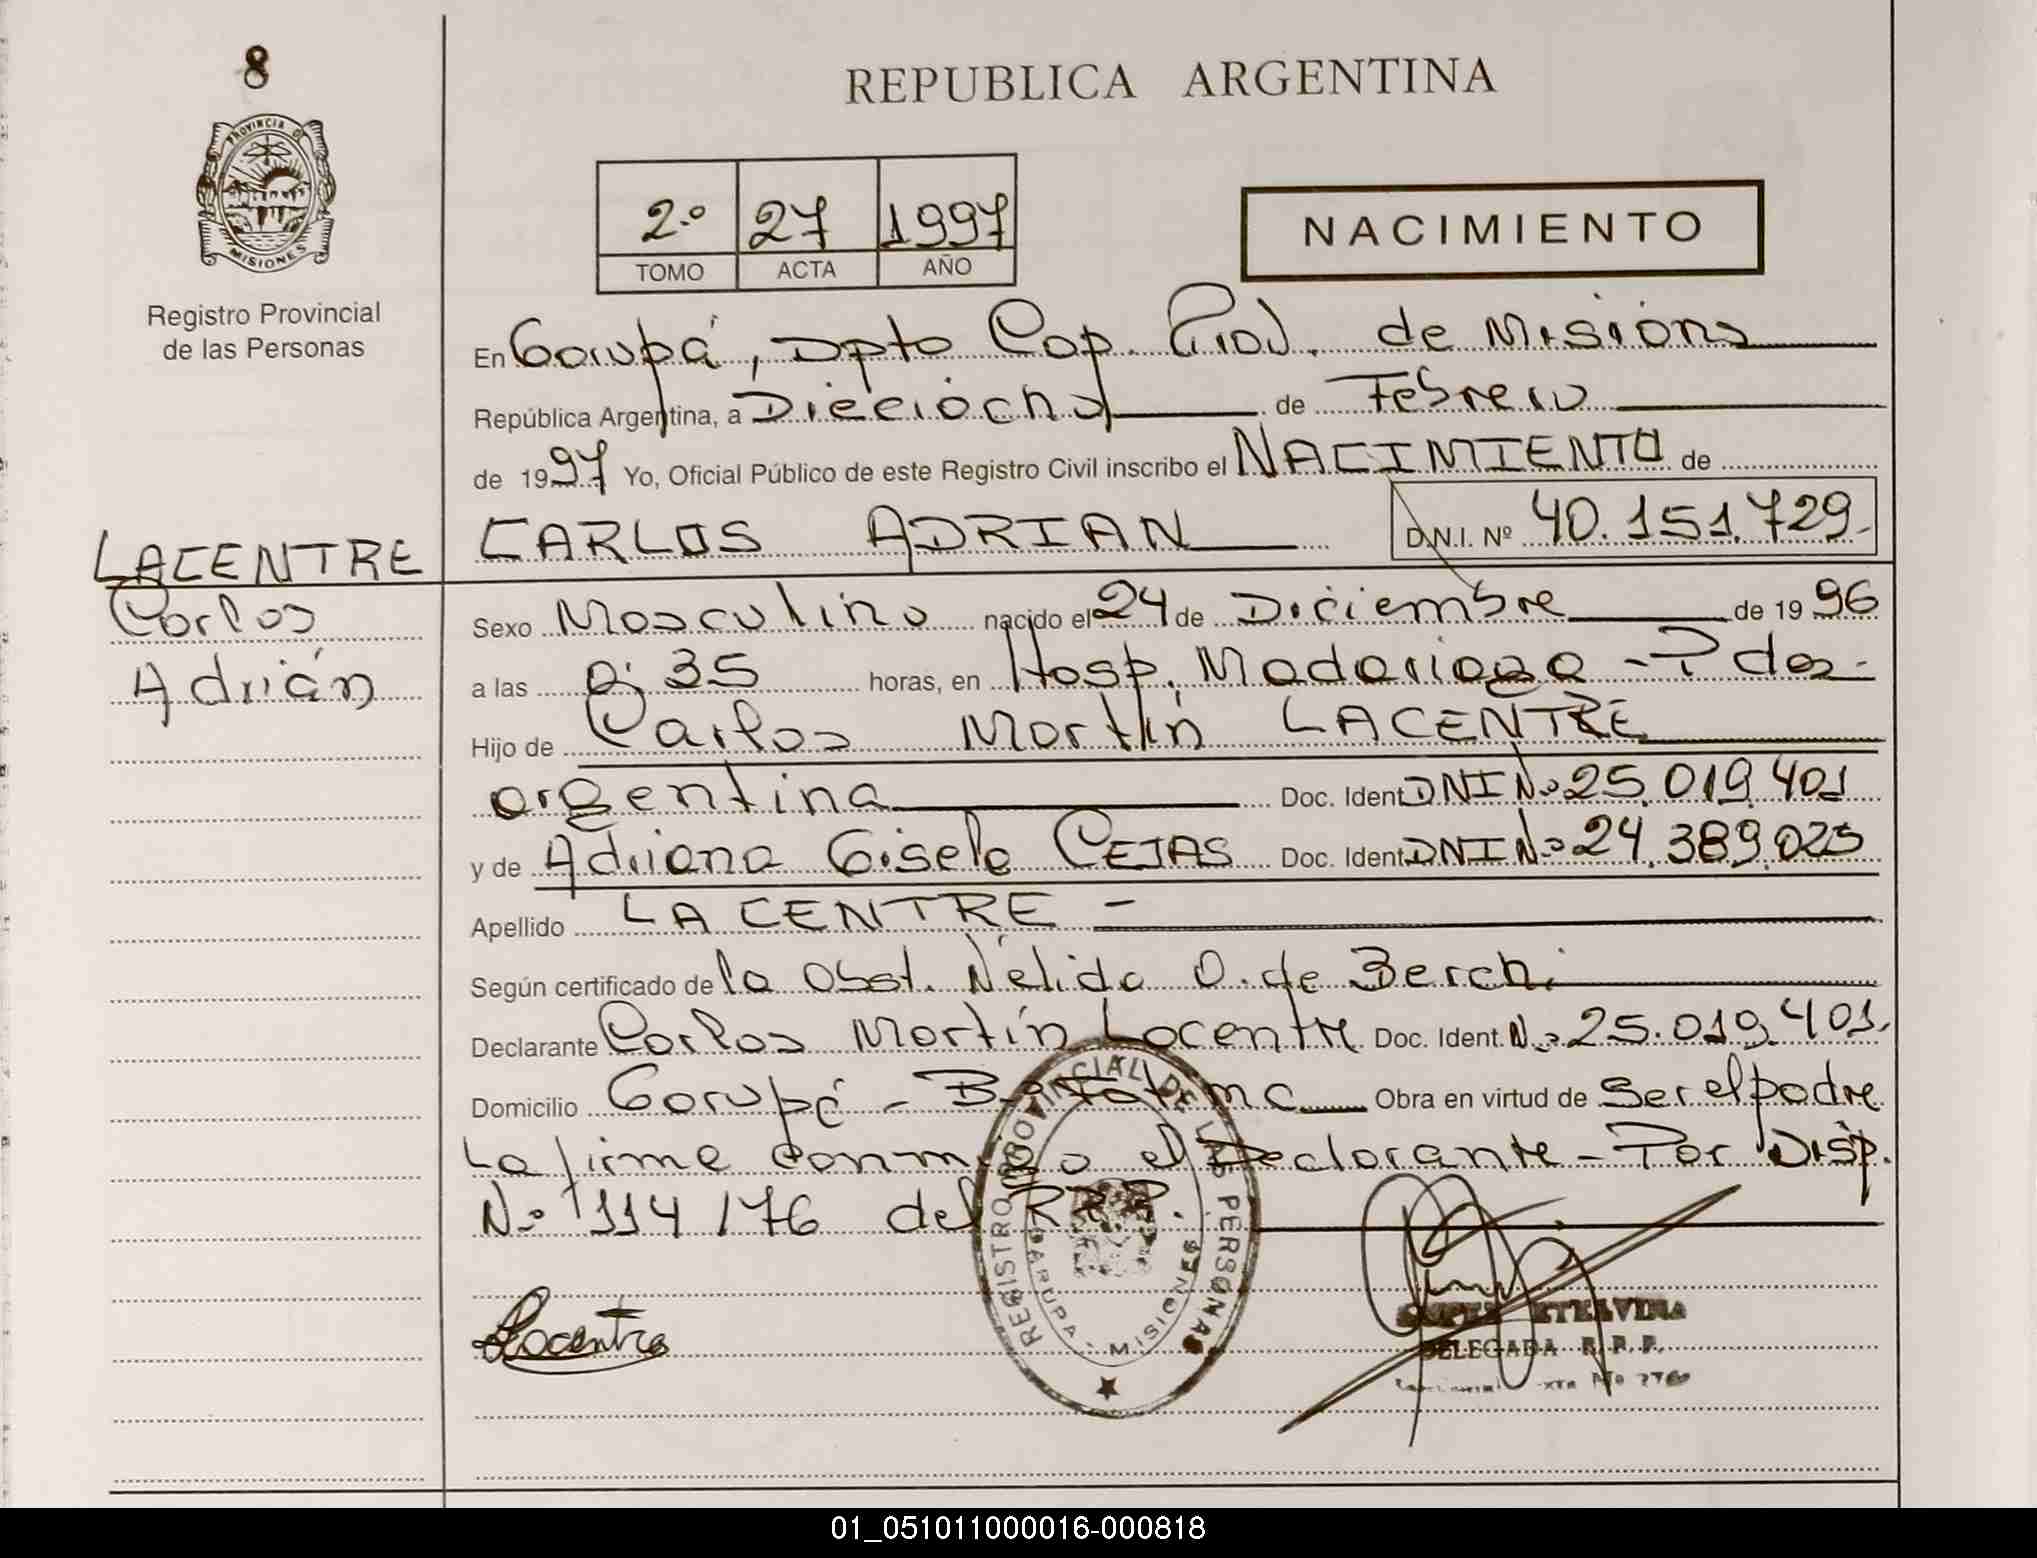 8
REPUBLICA ARGENTINA
PROVINCIA D
MISIONES
Registro Provincial
de las Personas
2.º 27 1997
TOMO ACTA AÑO
NACIMIENTO
En Garupá, Dpto Cap. Prov. de Misions
República Argentina, a Dieciocho de Febrero
de 1997 Yo, Oficial Público de este Registro Civil inscribo el NACIMIENTO de
CARLOS ADRIAN D.N.I. Nº 40.151.729.-
LACENTRE
Carlos
Adrián
Sexo Masculino nacido el 24 de Diciembre de 19 96
a las 35 horas, en Hosp. Madariaga - Pdas -
Hijo de Carlos Martín LACENTRE
argentina Doc. Ident DNI Nº 25.019.401
y de Adriana Gisela CEJAS Doc. Ident DNI Nº 24.389.025
Apellido LACENTRE -
Según certificado de la Obst. Nélida O. de Berchi
Declarante Carlos Martín Lacentre Doc. Ident. Nº 25.019.401.
Domicilio Garupá - Bº Fátima Obra en virtud de Ser el padre
La firme conmigo el Declarante - Por Disp.
Nº 114/76 del R.P.P.
REGISTRO PROVINCIAL DE LAS PERSONAS
GARUPA - MISIONES
Lacentre
ETELVINA
DELEGADA R.P.P.
01_051011000016-000818